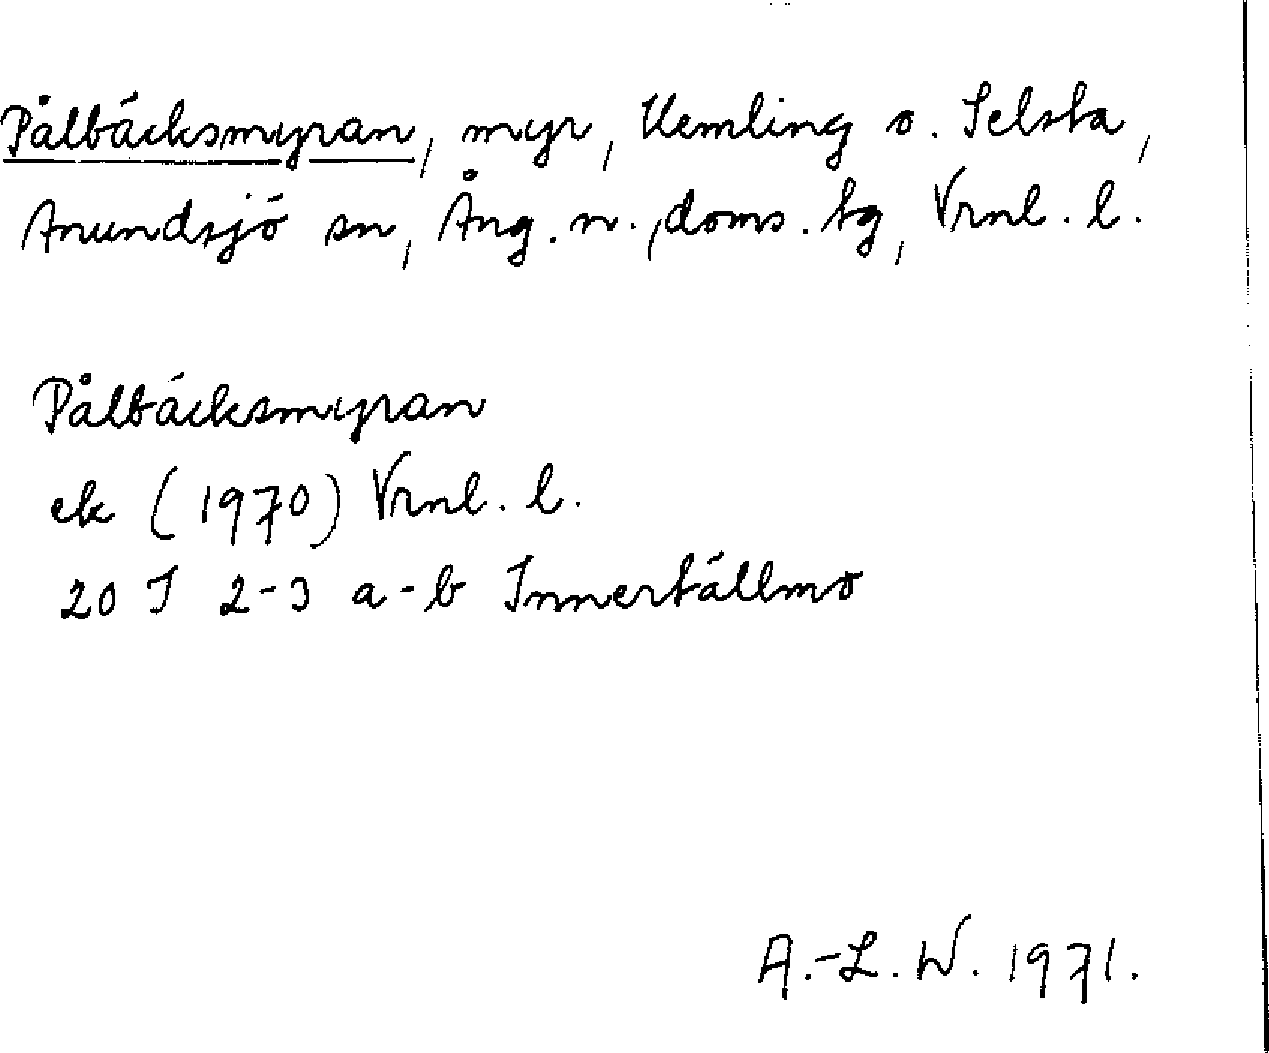 Pålbäcksmyran, myr, Kemling o. Selsta,
Anundsjö sn, Ång. n., doms. tg, Vrnl. l.
Pålbäcksmyran
ek (1970) Vrnl. l.
20 I 2-3 a-b Innertällmo
A.-L. W. 1971.